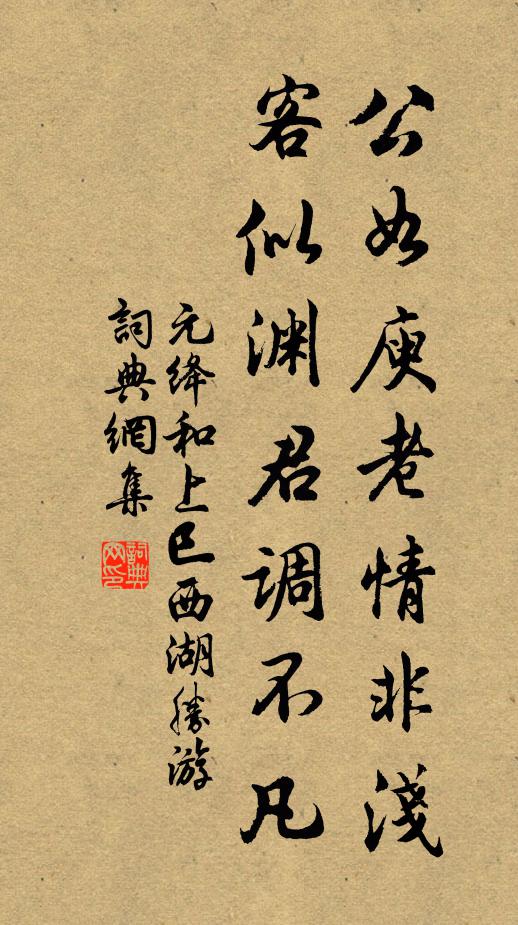 公如庾老情非淺
客似淵君調不凡
元絳和上巳西湖勝游
詞典網集
詞典網印